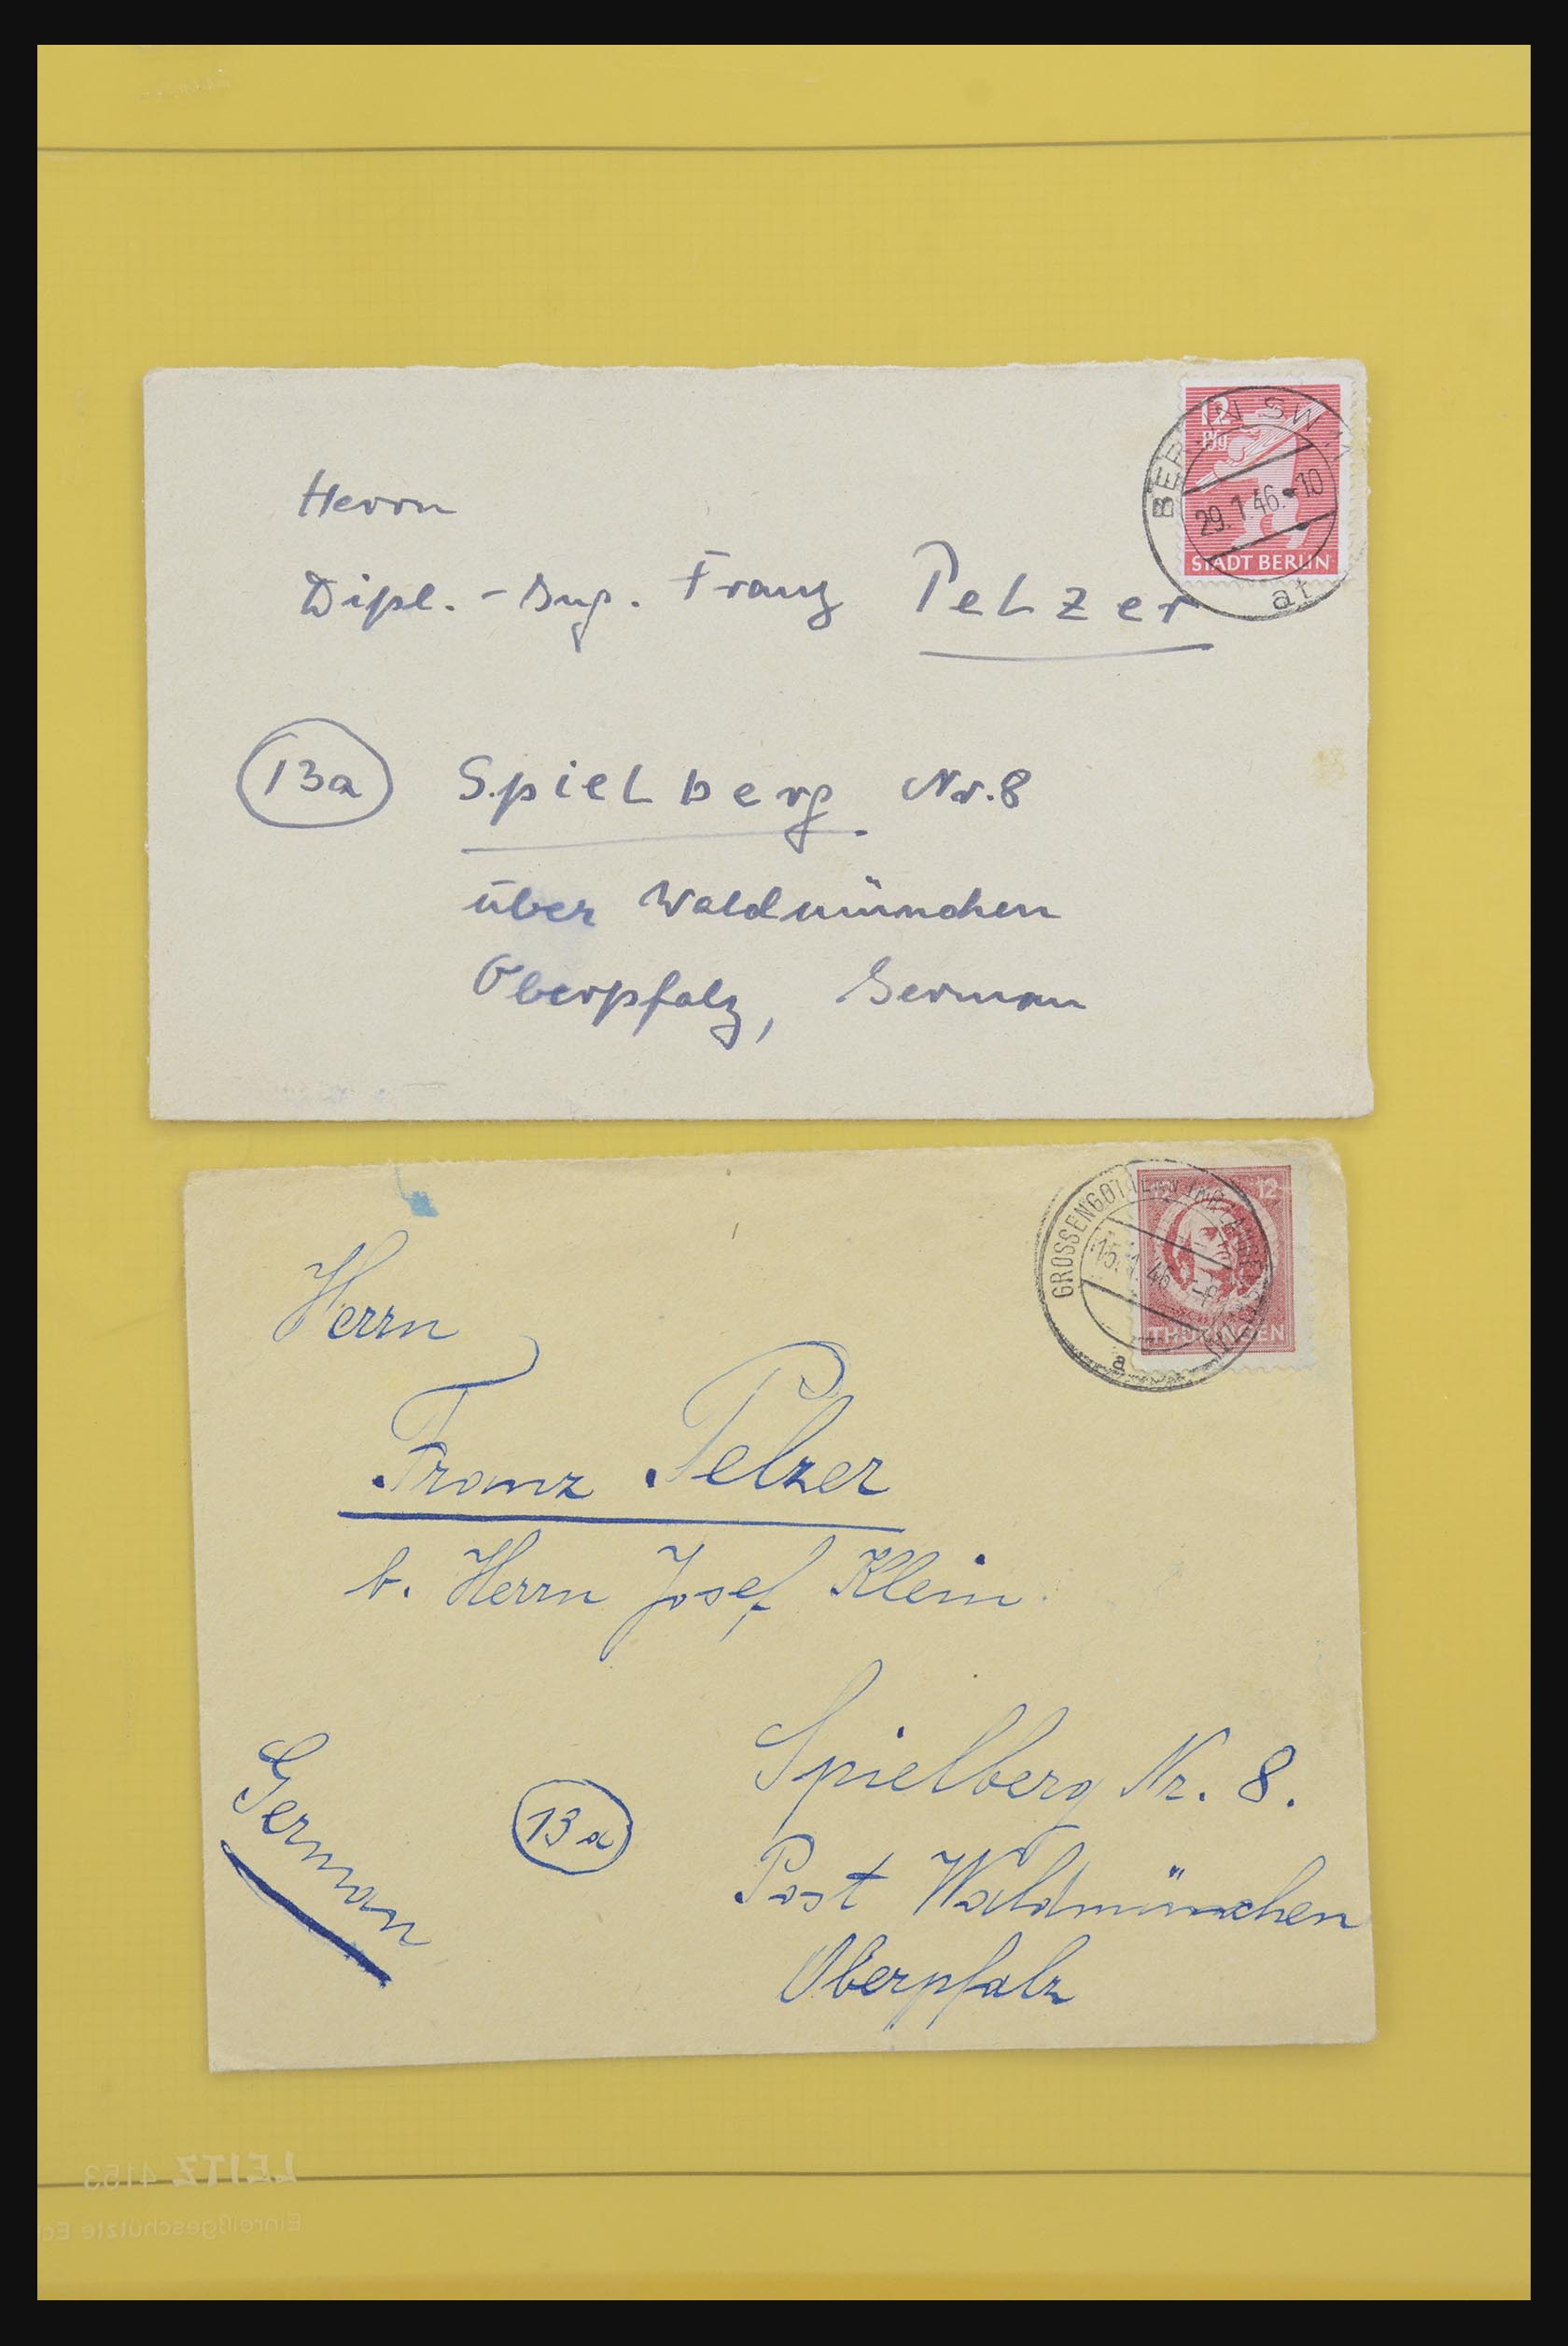 12
Pfg
BERLIN SW
29.1.46.-10
STADT BERLIN
at
Herrn
Dipl.-Ing. Franz Pelzer
13a Spielberg Nr. 8
über Waldmünchen
Oberpfalz, German
12
GROSSENGOTTERN
THÜRINGEN
a
Herrn
Franz Pelzer
b. Herrn Josef Klein
German
13a
Spielberg Nr. 8.
Post Waldmünchen
Oberpfalz
LEITZ 4153
Einreißgeschützte